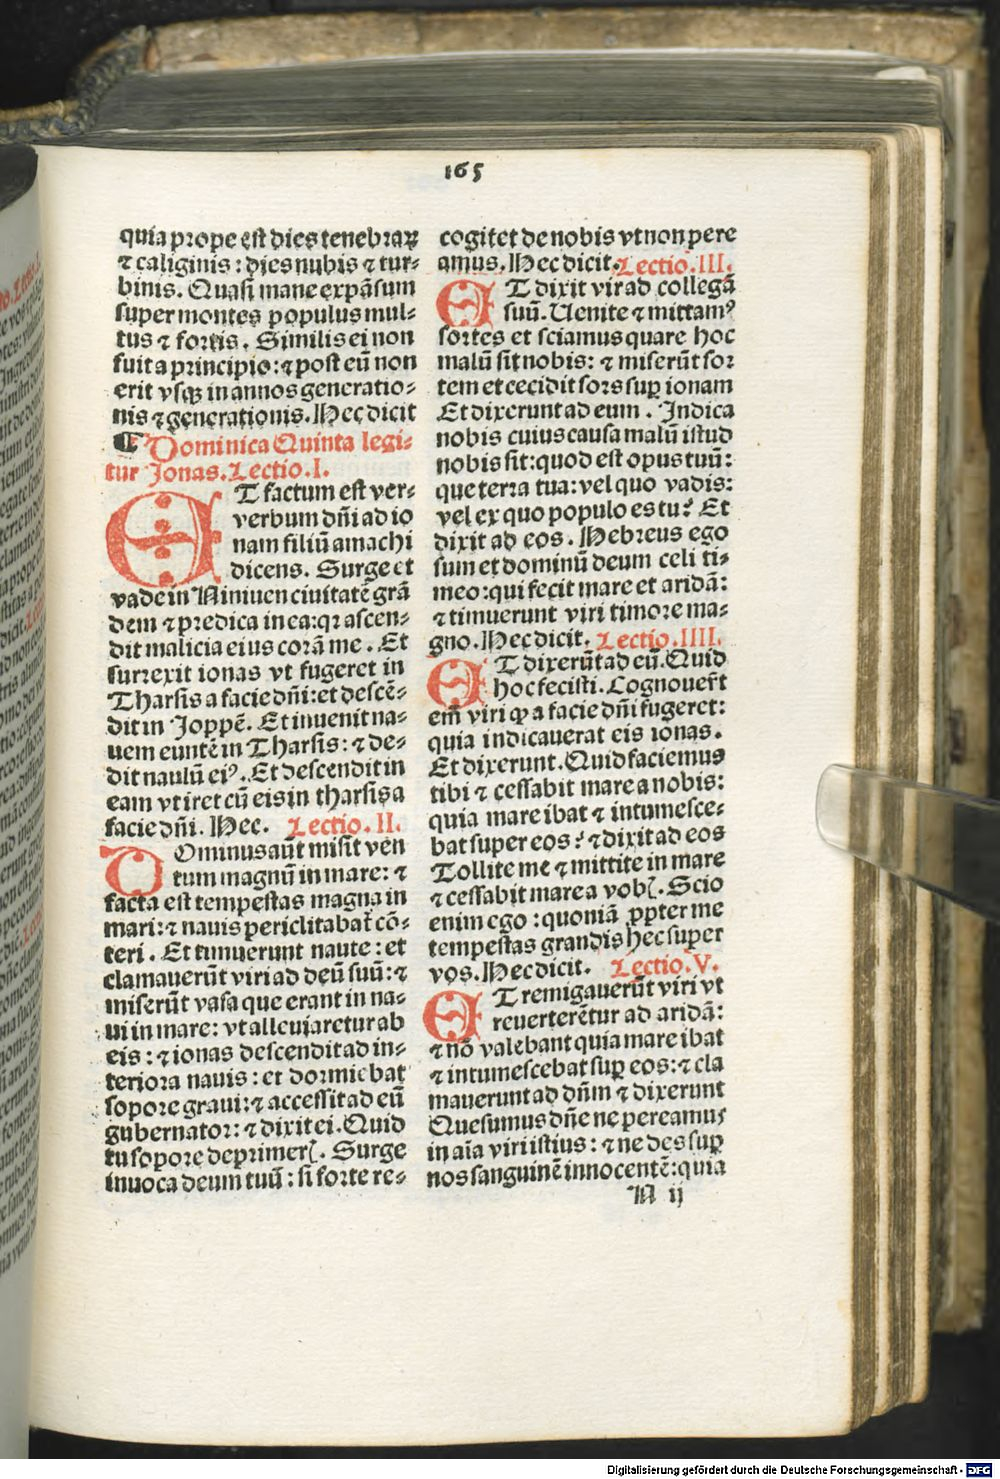 165
quia prope est dies tenebraꝝ
⁊ caliginis : dies nubis ⁊ tur⸗
binis. Quasi mane expāsum
super montes populus mul⸗
tus ⁊ fortis. Similis ei non
fuit a principio: ⁊ post eū non
erit vsqꝫ in annos generatio⸗
nis ⁊ generationis. Hec dicit
¶ Dominica Quinta legi⸗
tur Jonas. Lectio. I.
ET factum est ver⸗
verbum dñi ad io
nam filiū amachi
dicens. Surge et
vade in Niniuen ciuitatē grā
dem ⁊ predica in ea: qꝛ ascen⸗
dit malicia eius corā me. Et
surrexit ionas vt fugeret in
Tharsis a facie dñi: et descē⸗
dit in Joppē. Et inuenit na⸗
uem euntē in Tharsis: ⁊ de⸗
dit naulū eiꝰ. Et descendit in
eam vt iret cū eis in tharsis a
facie dñi. Hec. Lectio. II.
DOminus aūt misit ven
tum magnū in mare: ⁊
facta est tempestas magna in
mari: ⁊ nauis periclitabat̄ cō⸗
teri. Et timuerunt naute: et
clamauerūt viri ad deū suū: ⁊
miserūt vasa que erant in na⸗
ui in mare: vt alleuiaretur ab
eis : ⁊ ionas descendit ad in⸗
teriora nauis: et dormiebat
sopore graui: ⁊ accessit ad eū
gubernator: ⁊ dixit ei. Quid
tu sopore deprimerꝭ. Surge
inuoca deum tuū : si forte re⸗
cogitet de nobis vt non pere
amus. Hec dicit. Lectio. III.
ET dixit vir ad collegā
suū. Uenite ⁊ mittamꝰ
sortes et sciamus quare hoc
malū sit nobis: ⁊ miserūt sor
tem et cecidit sors suꝑ ionam
Et dixerunt ad eum. Indica
nobis cuius causa malū istud
nobis sit: quod est opus tuū:
que terra tua: vel quo vadis:
vel ex quo populo es tu? Et
dixit ad eos. Hebreus ego
sum et dominū deum celi ti⸗
meo: qui fecit mare et aridā:
⁊ timuerunt viri timore ma⸗
gno. Hec dicit. Lectio. IIII.
ET dixerūt ad eū. Quid
hoc fecisti. Cognouer̄t
em̄ viri ꝙ a facie dñi fugeret:
quia indicauerat eis ionas.
Et dixerunt. Quid faciemus
tibi ⁊ cessabit mare a nobis:
quia mare ibat ⁊ intumesce⸗
bat super eos? ⁊ dixit ad eos
Tollite me ⁊ mittite in mare
⁊ cessabit mare a vobꝭ. Scio
enim ego : quoniā ꝓpter me
tempestas grandis hec super
vos. Hec dicit. Lectio. V.
ET remigauerūt viri vt
reuerterētur ad aridā:
⁊ nō valebant quia mare ibat
⁊ intumescebat suꝑ eos: ⁊ cla
mauerunt ad dñm ⁊ dixerunt
Quesumus dñe ne pereamus
in aīa viri istius : ⁊ ne des suꝑ
nos sanguinē innocentē: quia
N ij
Digitalisierung gefördert durch die Deutsche Forschungsgemeinschaft - DFG